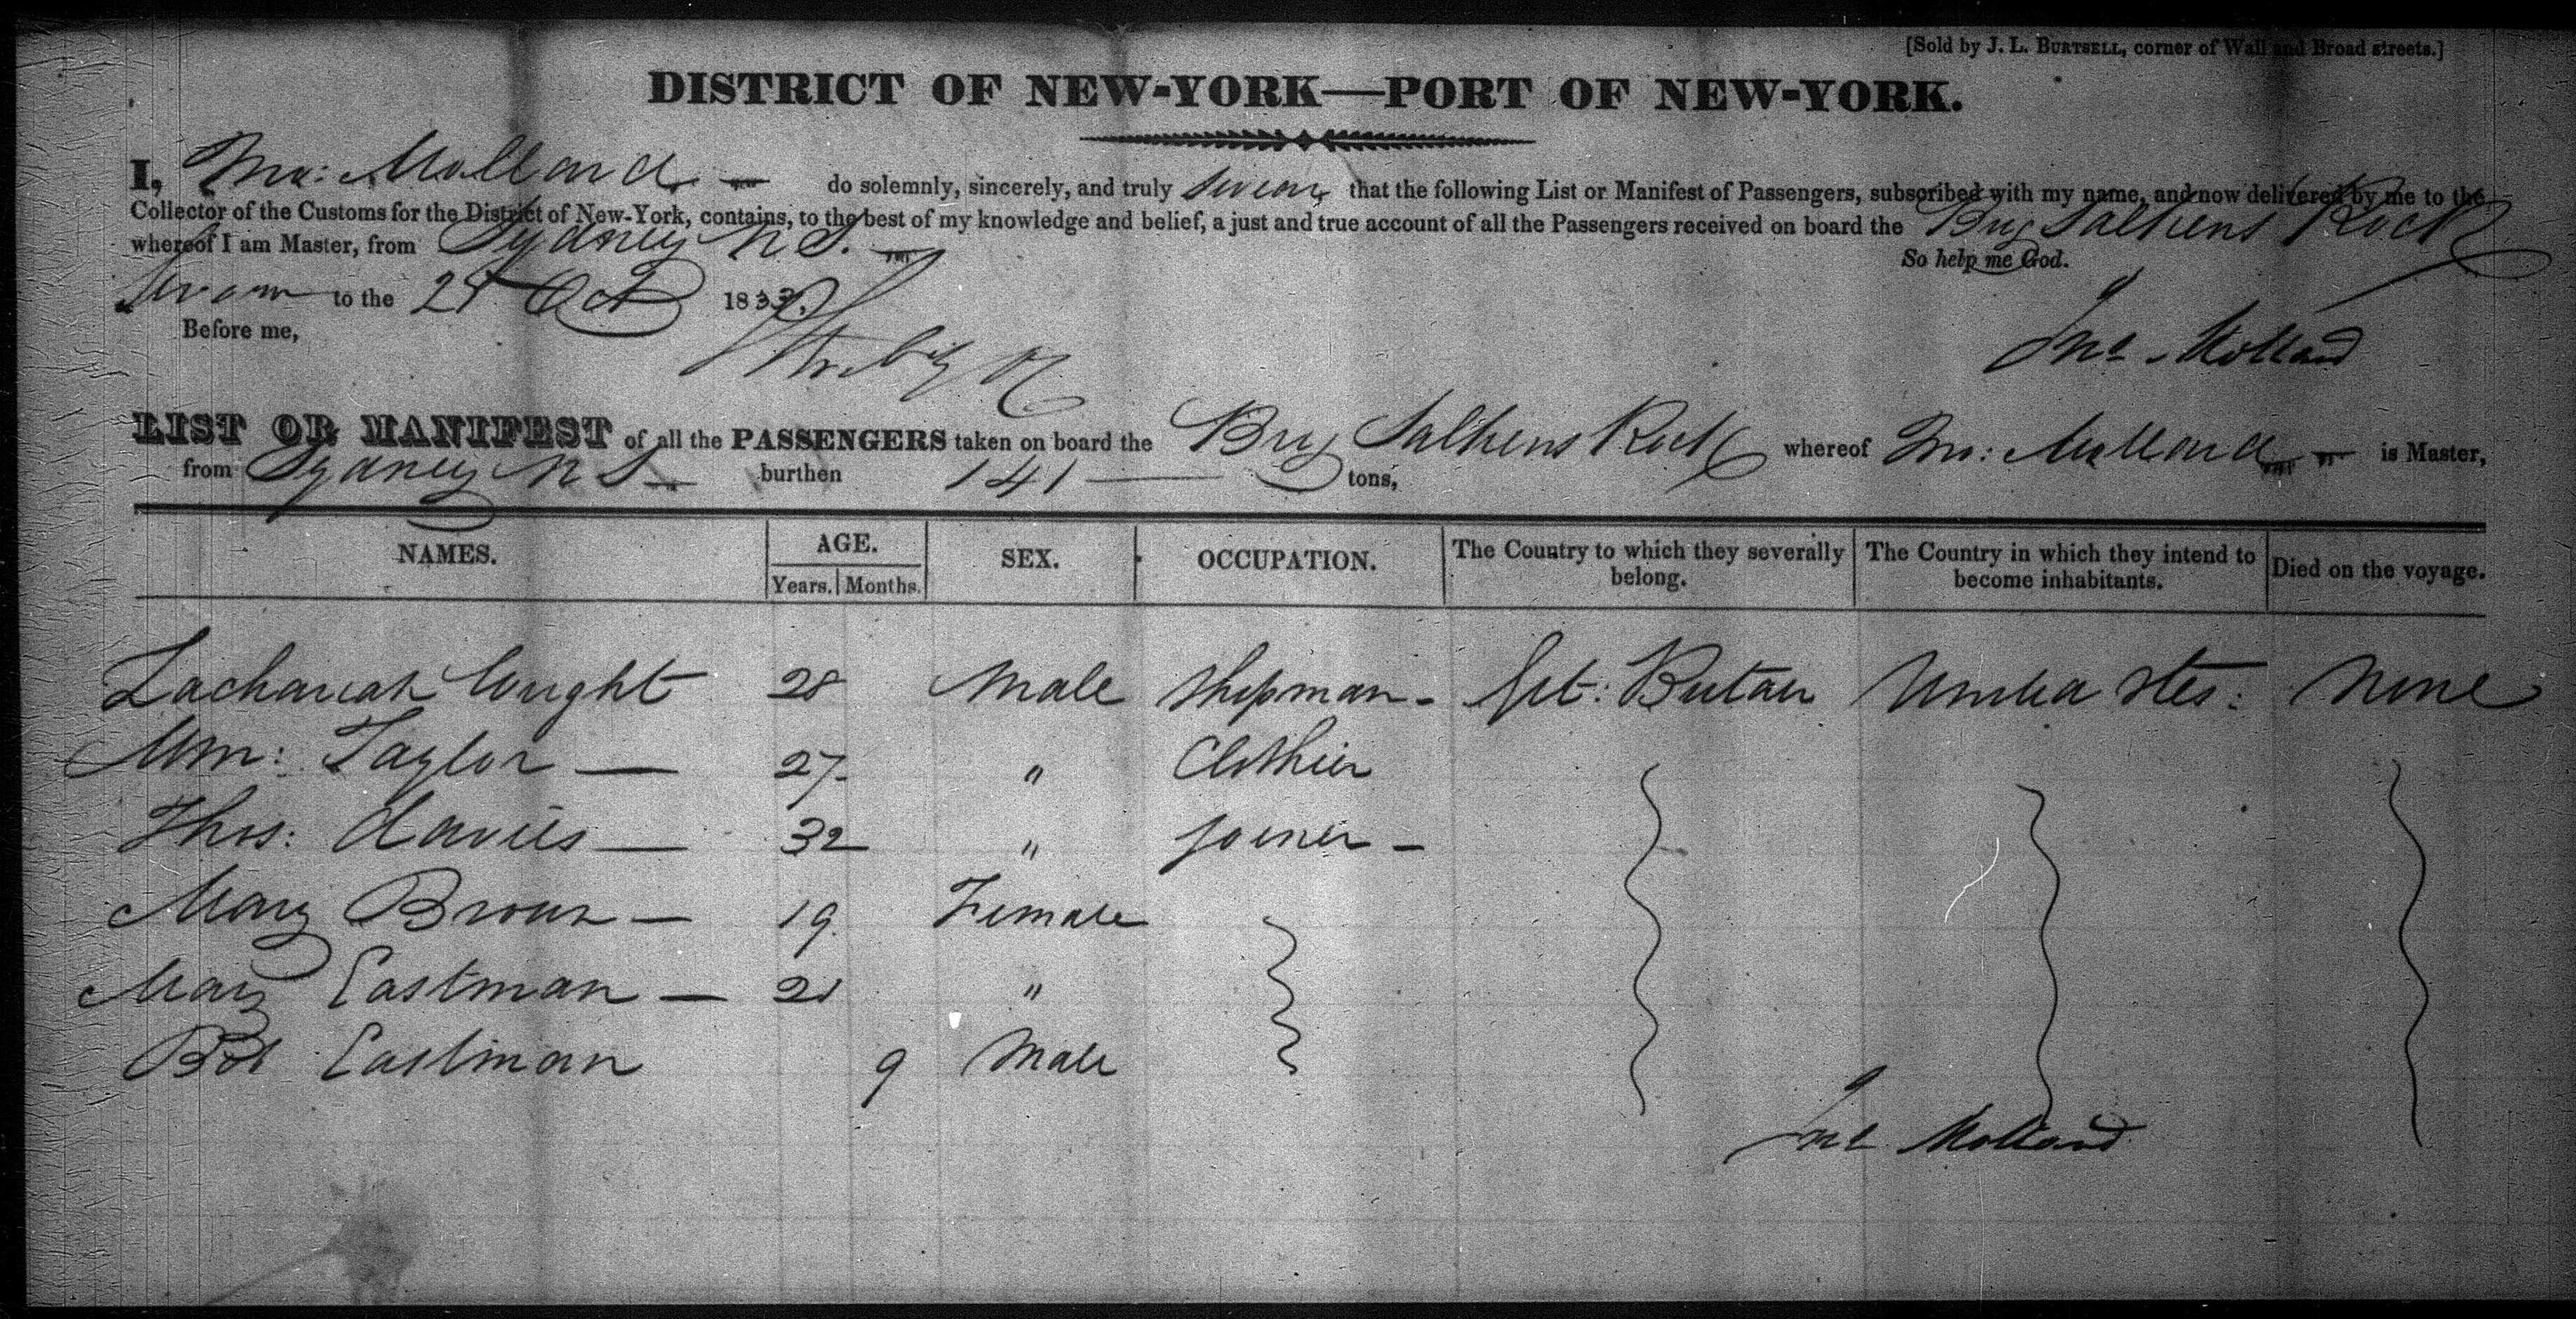 [Sold by J. L. BURTSELL, corner of Wall and Broad streets.]
DISTRICT OF NEW-YORK—PORT OF NEW-YORK.
I, Molland do solemnly, sincerely, and truly swear that the following List or Manifest of Passengers, subscribed with my name, and now delivered by me to the
Collector of the Customs for the District of New-York, contains, to the best of my knowledge and belief, a just and true account of all the Passengers received on board the Brig Salkens Rock
whereof I am Master, from Sydney N S.
So help me God.
Sworn to the Oct 183
Before me,
Jno Molland
LIST OR MANIFEST of all the PASSENGERS taken on board the Brig Salkens Rock whereof Molland is Master,
from Sydney N S burthen 141 tons,
NAMES. AGE. SEX. OCCUPATION. The Country to which they severally belong. The Country in which they intend to become inhabitants. Died on the voyage.
Years. Months.
Zachariah Wright 28 Male Britain None
Wm: Taylor — 27 " Clothier
Thos: Davies — 32 " Joiner -
Mary Brown — 19 Female
Mary Eastman — 21 "
Eastman 9 Male
Jno Molland